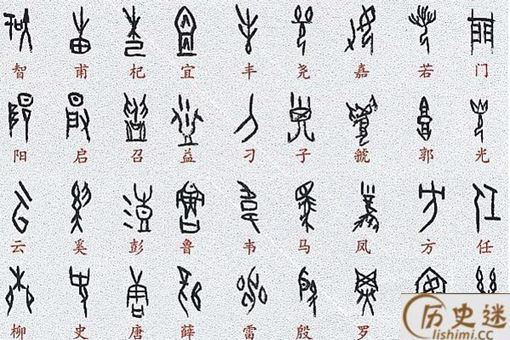 智 甫 杞 宜 丰 尧 嘉 若 门
阳 启 召 益 刁 子 虢 郭 光
云 奚 彭 鲁 韦 马 凤 方 任
柳 史 唐 薛 雷 殷 罗
历史迷
lishimi.cc